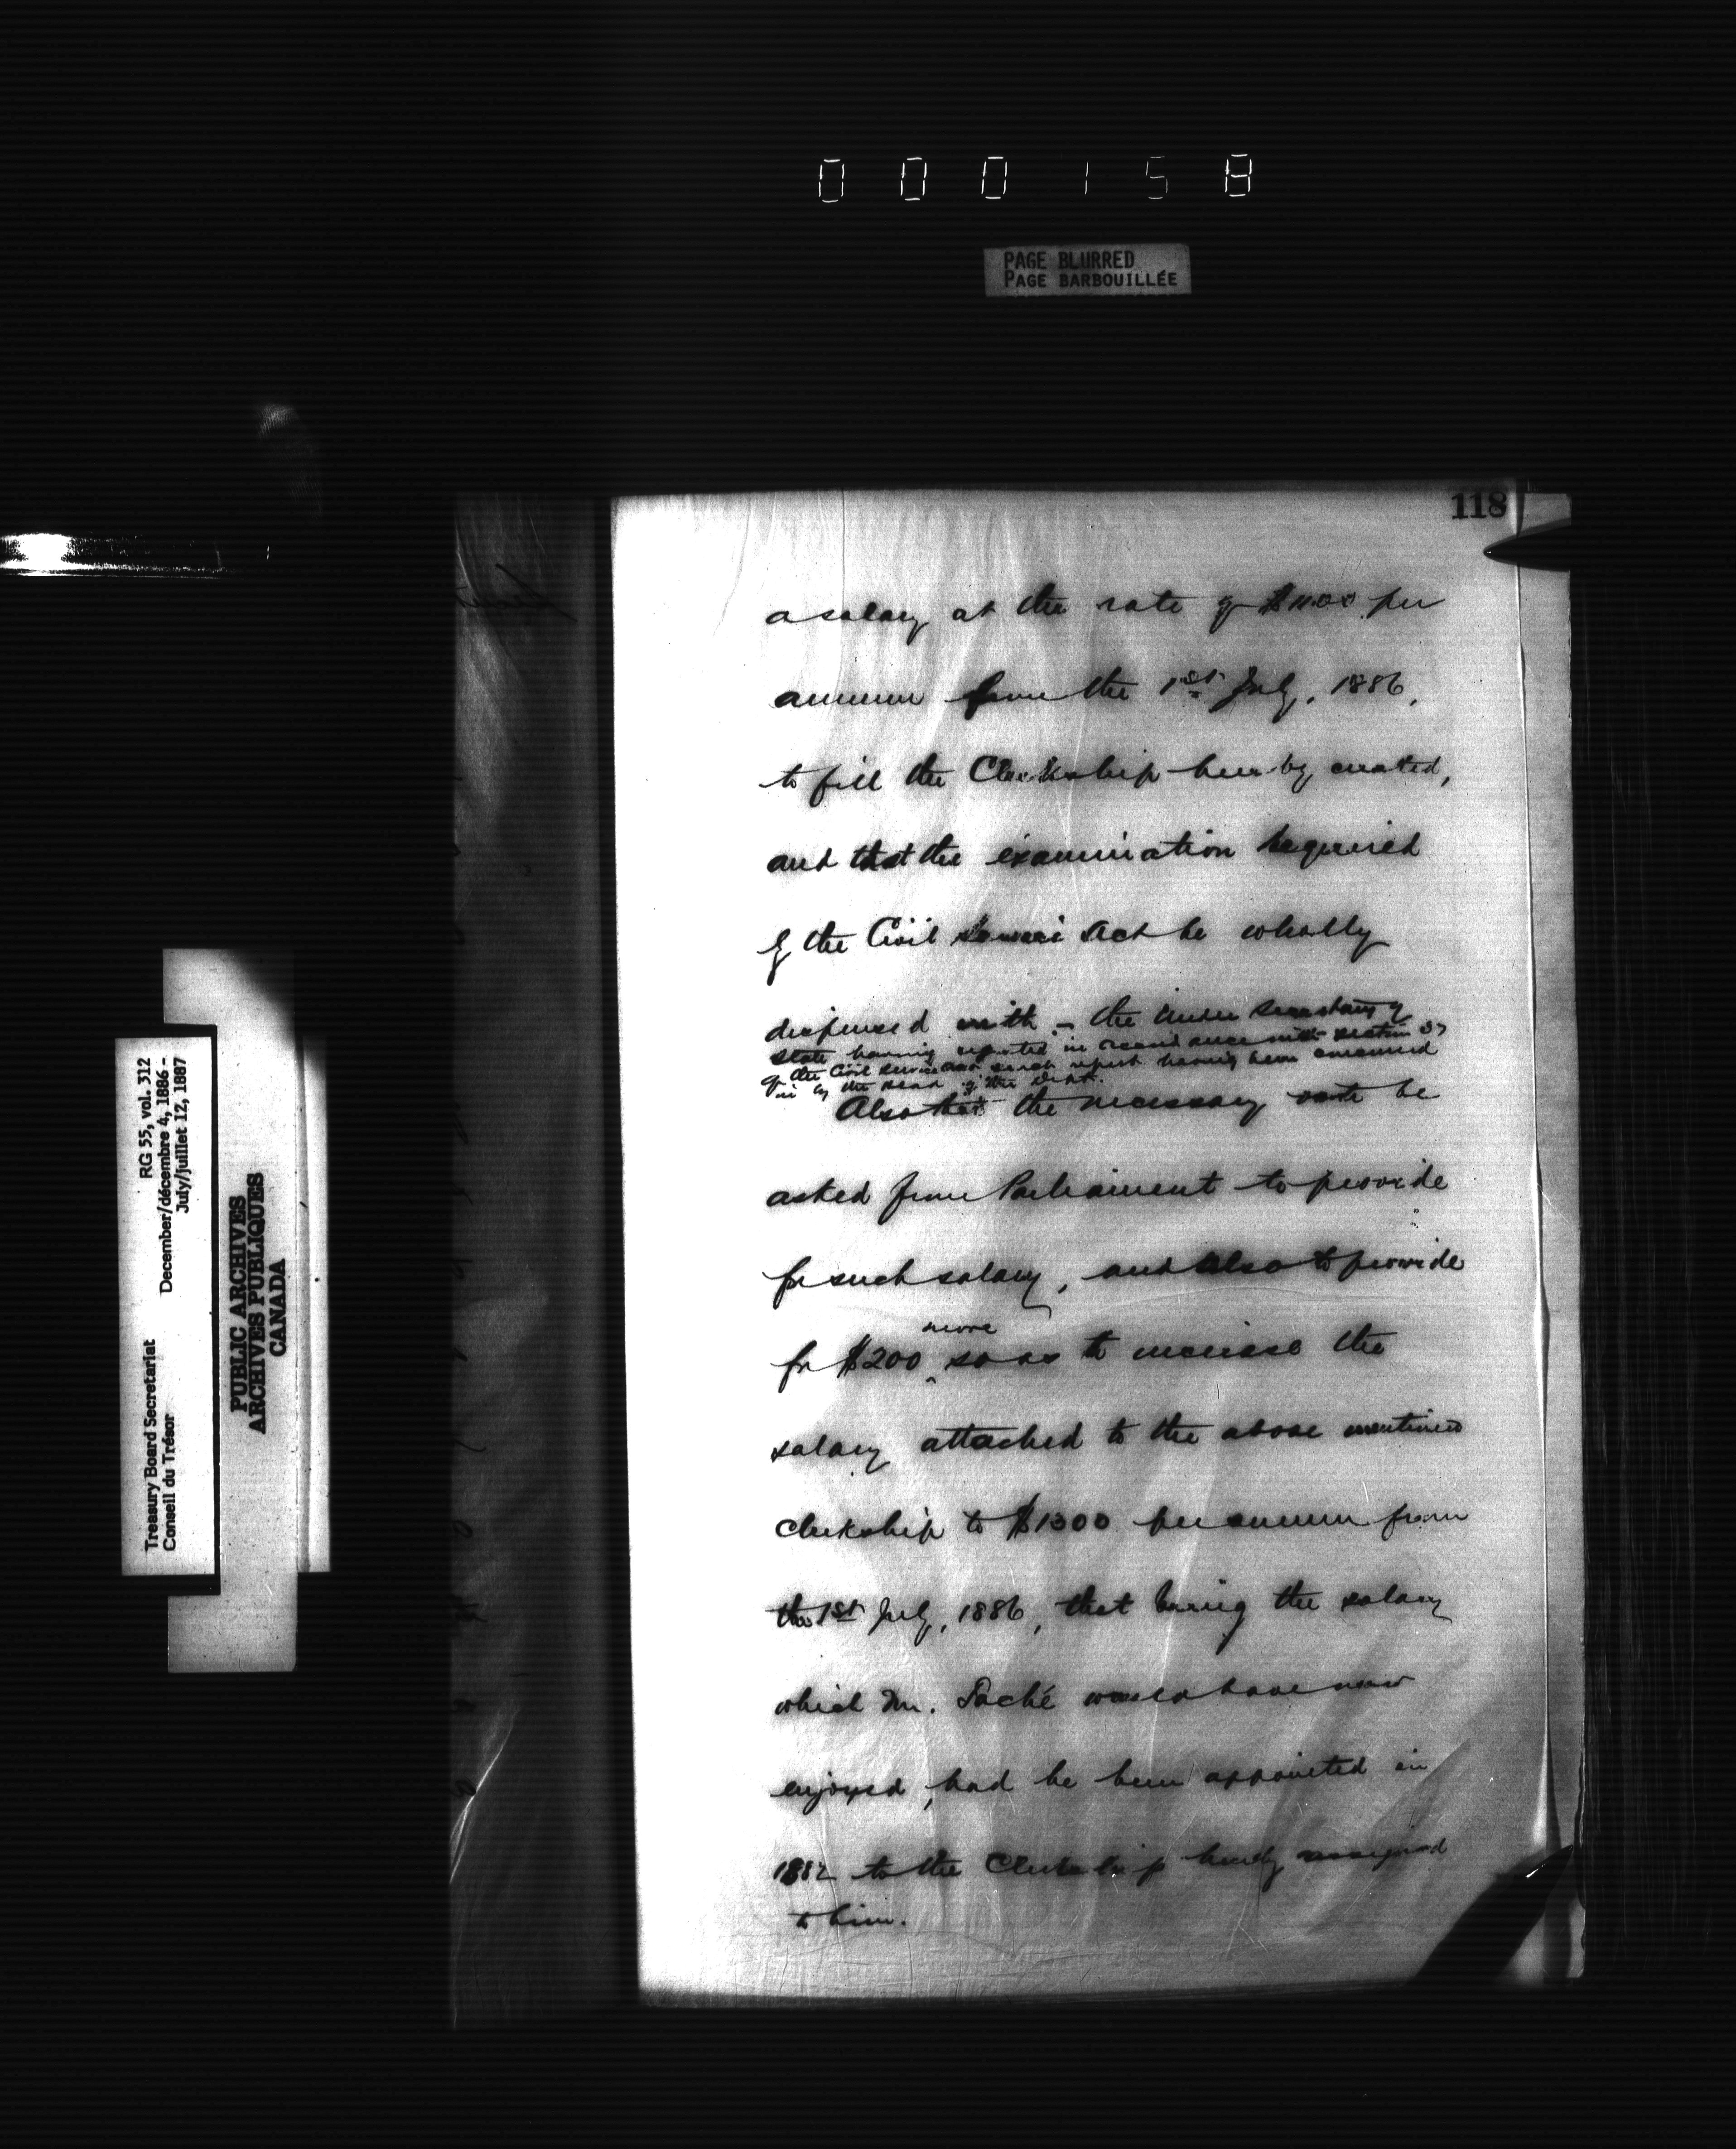 000158
PAGE BLURRED
PAGE BARBOUILLÉE
118
a salary at the rate of $1100 per
annum from the 1st July, 1886,
to fill the Clerkship hereby created,
and that the examination required
by the Civil Service Act be wholly
dispensed with – the Under Secretary of
State having reported in accordance with section 37
of the Civil Service Act such report having been concurred
in by the Head of the Dept.
Also that the necessary vote be
asked from Parliament to provide
for such salary, and also to provide
more
for $200 so as to increase the
salary attached to the above mentioned
clerkship to $1300 per annum from
the 1st July, 1886, that being the salary
which Mr. Taché would have now
enjoyed, had he been appointed in
1882 to the Clerkship hereby assigned
to him.
Treasury Board Secretariat RG 55, vol. 312
Conseil du Trésor December/décembre 4, 1886 -
July/juillet 12, 1887
PUBLIC ARCHIVES
ARCHIVES PUBLIQUES
CANADA